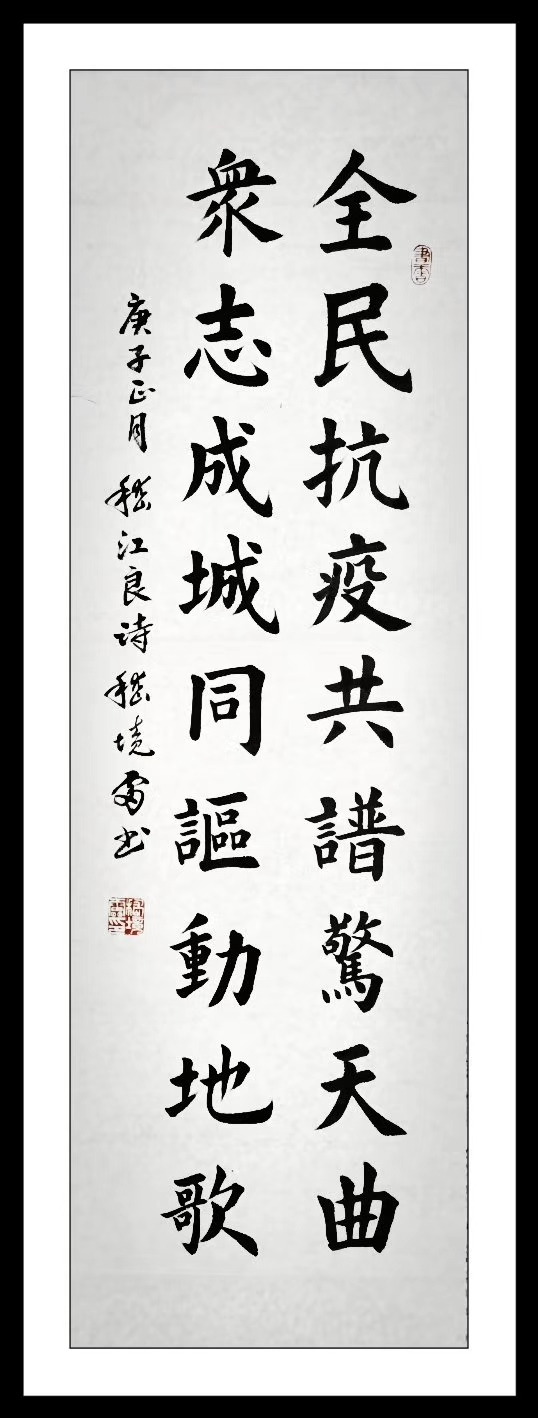 全民抗疫共譜驚天曲
衆志成城同謳動地歌
庚子正月 嵇江良诗 嵇境雷书